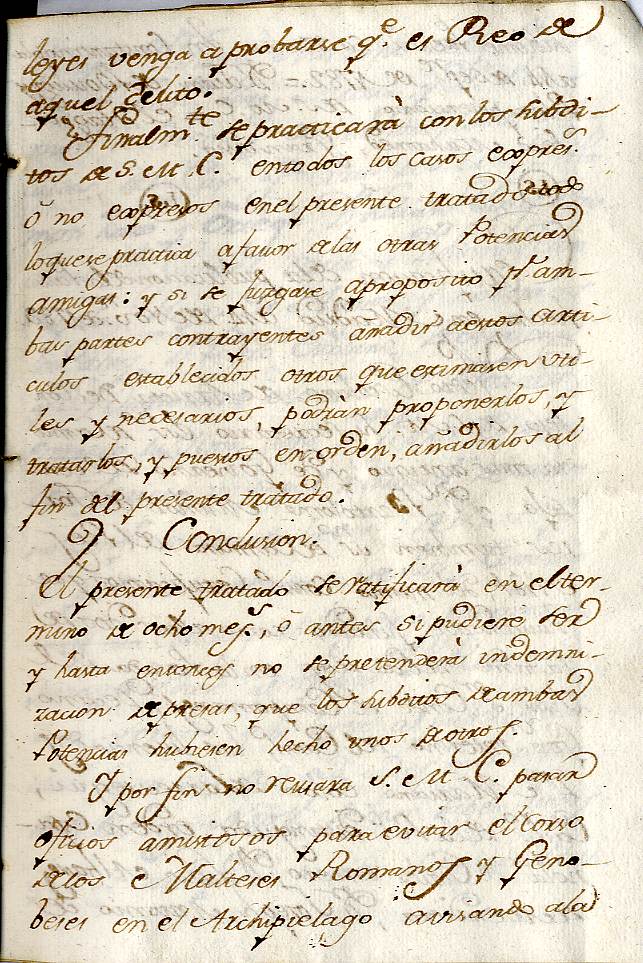 leyes venga a probarse q.e es Reo de
aquel delito.
Finalm.te se practicarà con los subdi-
tos de S. M. C. en todos los casos expres.s
ò no expresos en el presente tratado todo
lo que se practica a favor de las otras Potencias
amigas: y si se juzgase a proposito p.r am-
bas partes contrayentes añadir a estos arti-
culos establecidos otros que estimasen uti-
les y necesarios, podràn proponerlos, y
tratarlos, y puestos en orden, añadirlos al
fin del presente tratado.
Conclusion.
El presente tratado se ratificarà en el ter-
mino de ocho mes.s, ò antes si pudiere ser
y hasta entonces no se pretenderà indemni-
zacion de presas, que los subditos de ambas
Potencias hubiesen hecho unos de otros.
Y por fin no reusara S. M. C. pasar
oficios amistosos para evitar el Corso
de los Malteses Romanos y Geno-
beses en el Archipielago avisando a la